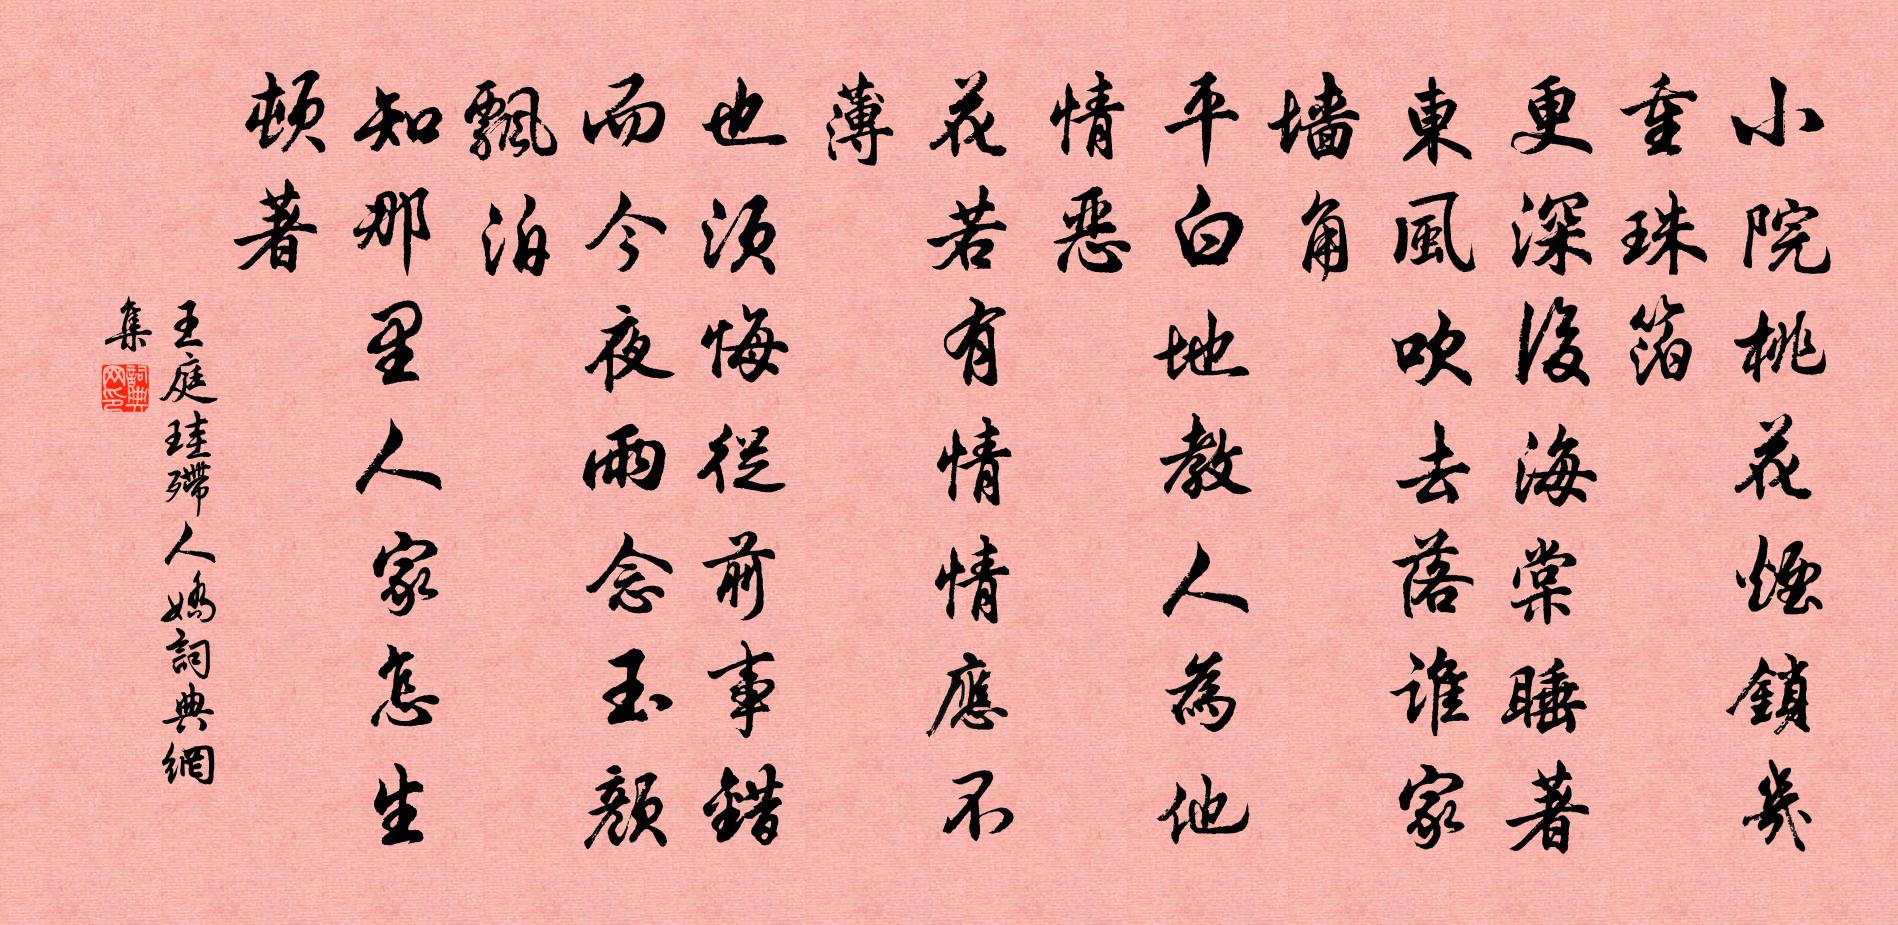 小院桃花煙鎖幾
重珠箔
更深後海棠睡著
東風吹去落誰家
墻角
平白地教人為他
情惡
花若有情情應不
薄
也須悔從前事錯
而今夜雨念玉顏
飄泊
知那里人家怎生
頓著
王庭珪殢人嬌詞典網
集
詞典网印